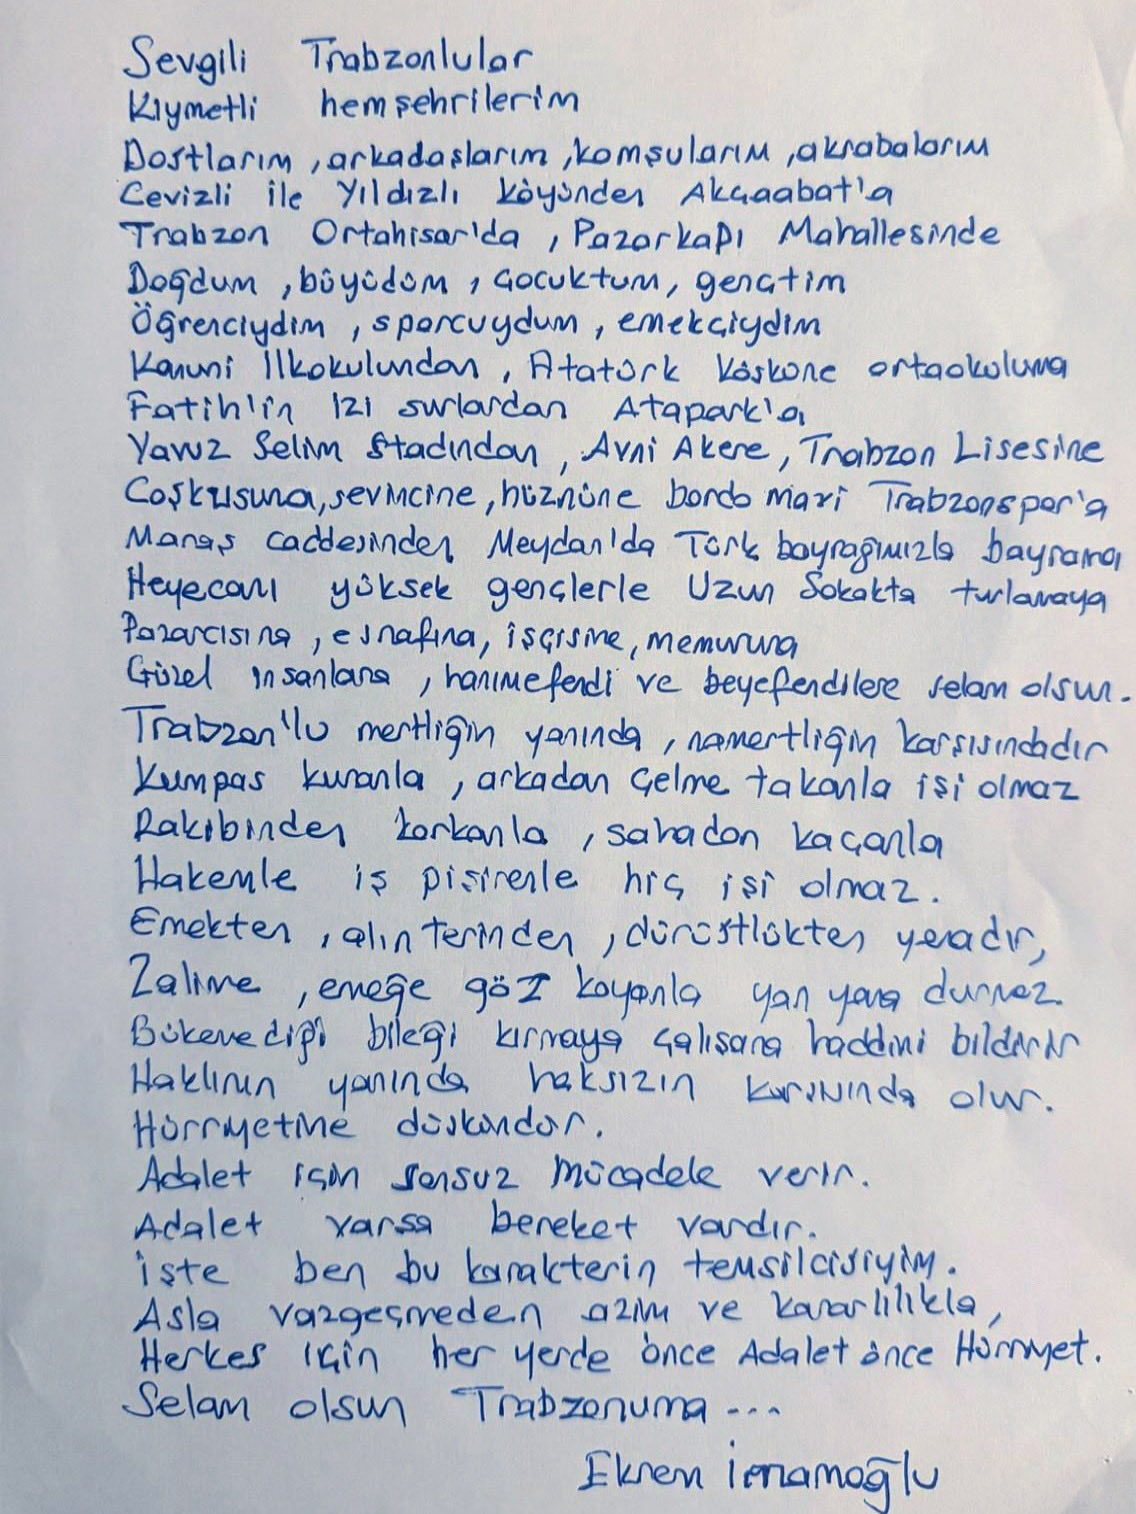 Sevgili Trabzonlular
Kıymetli hemşehrilerim
Dostlarım, arkadaşlarım, komşularım, akrabalarım
Cevizli ile Yıldızlı köyünden Akçaabat'a
Trabzon Ortahisar'da, Pazarkapı Mahallesinde
Doğdum, büyüdüm, çocuktum, gençtim
Öğrenciydim, sporcuydum, emekçiydim
Kanuni İlkokulundan, Atatürk Köşküne ortaokuluma
Fatih'in izi surlardan Atapark'a
Yavuz Selim Stadından, Avni Akere, Trabzon Lisesine
Coşkusuna, sevincine, hüznüne bordo mavi Trabzonspor'a
Maraş caddesinden Meydan'da Türk bayrağımızla bayrama
Heyecanı yüksek gençlerle Uzun Sokakta turlamaya
Pazarcısına, esnafına, işçisine, memuruna
Güzel insanlara, hanımefendi ve beyefendilere selam olsun.
Trabzon'lu mertliğin yanında, namertliğin karşısındadır
Kumpas kuranla, arkadan çelme takanla işi olmaz
Rakibinden korkanla, sahadan kaçanla
Hakemle iş pişirenle hiç işi olmaz.
Emekten, alın terinden, dürüstlükten yanadır,
Zalime, emeğe göz koyanla yan yana durmaz.
Bükemediği bileği kırmaya çalışana haddini bildirir
Haklının yanında haksızın karşısında olur.
Hürriyetine düşkündür.
Adalet için sonsuz mücadele verir.
Adalet varsa bereket vardır.
İşte ben bu karakterin temsilcisiyim.
Asla vazgeçmeden azim ve kararlılıkla,
Herkes için her yerde önce Adalet önce Hürriyet.
Selam olsun Trabzonuma...
Ekrem İmamoğlu